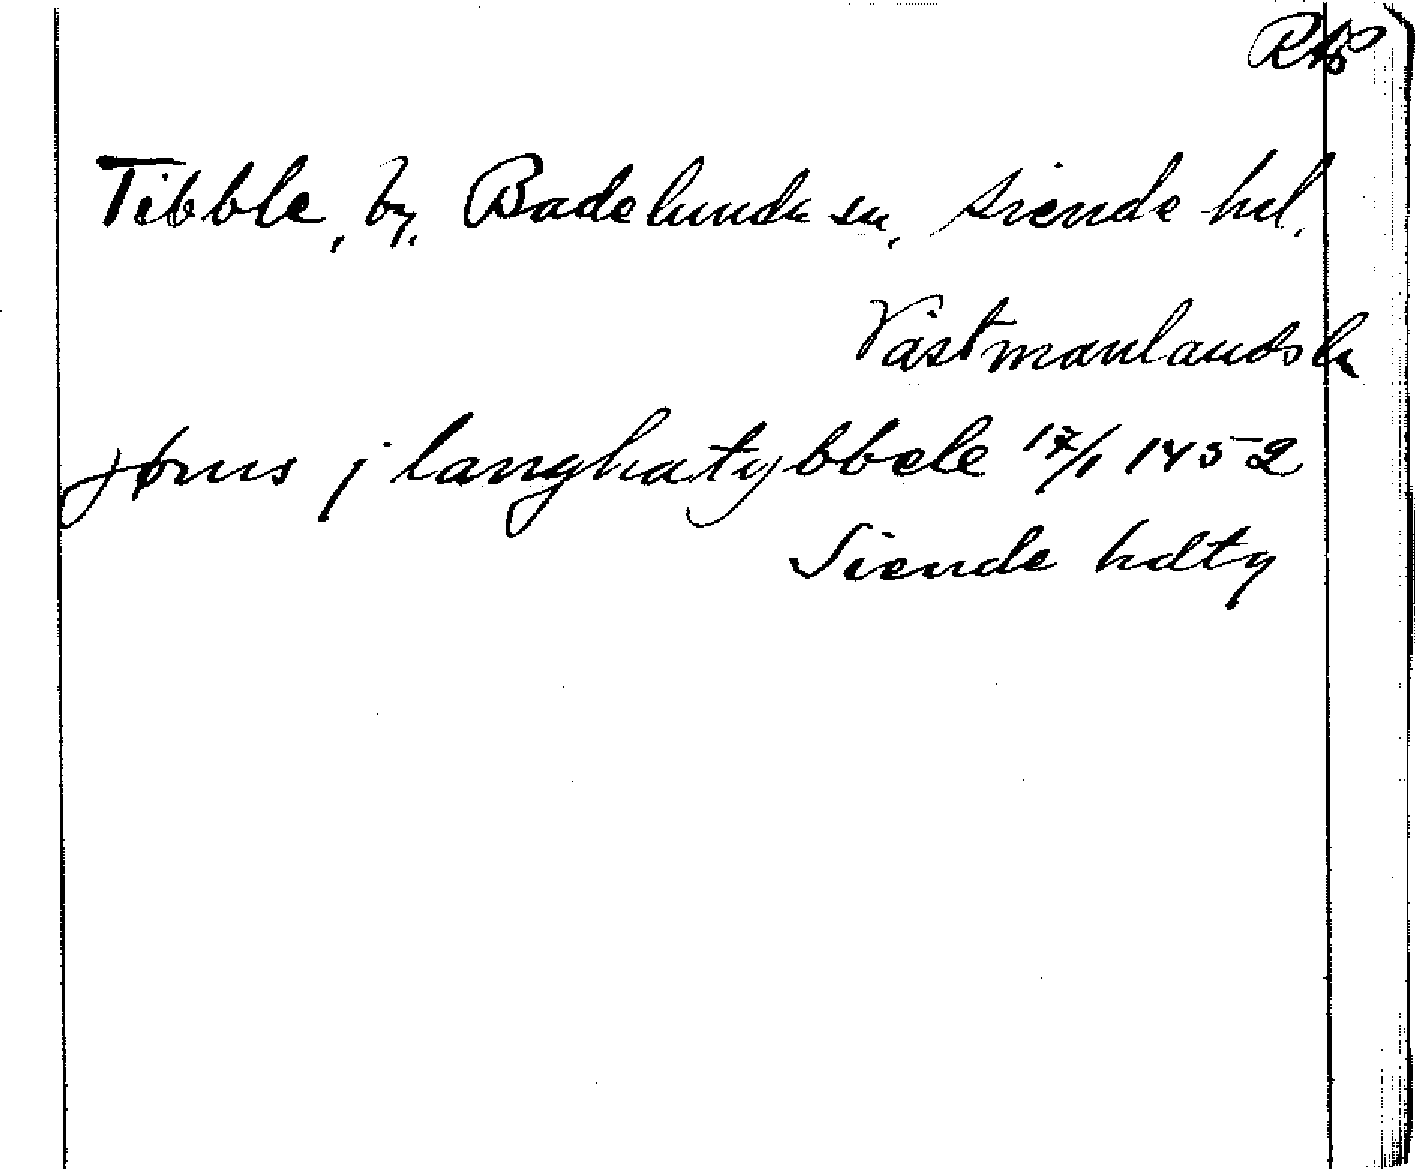 Tibble, by, Badelunda sn, Siende hd.
Västmanlands ln
jønus j langhatybbele 17/1 1452
Siende hdtg